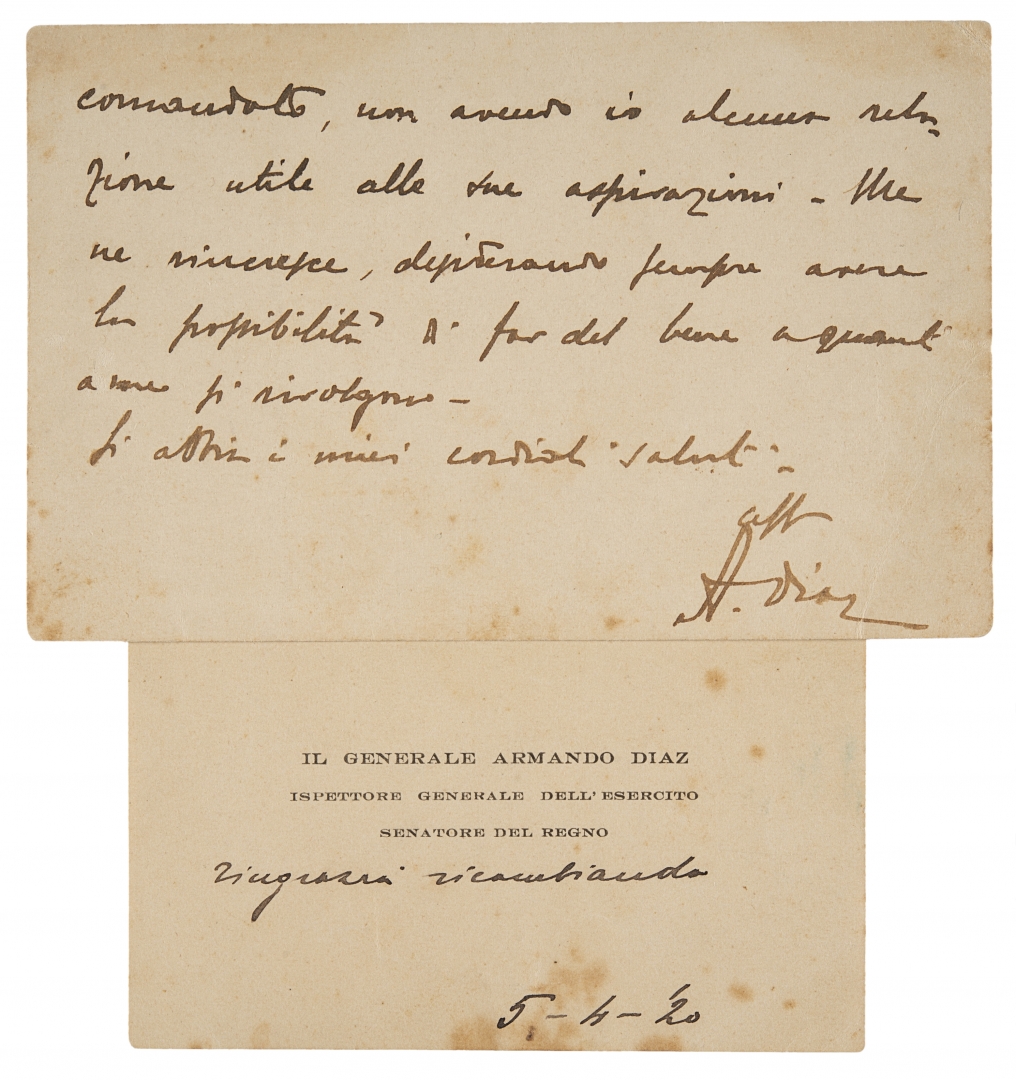 comandato, non avendo io alcuna rela-
zione utile alle sue aspirazioni - Me
ne rincresce, desiderando sempre avere
la possibilità di far del bene a quanti
a me si rivolgono -
Si abbia i miei cordiali saluti -
aff
A. Diaz
IL GENERALE ARMANDO DIAZ
ISPETTORE GENERALE DELL'ESERCITO
SENATORE DEL REGNO
ringrazia ricambiando
5-4-'20